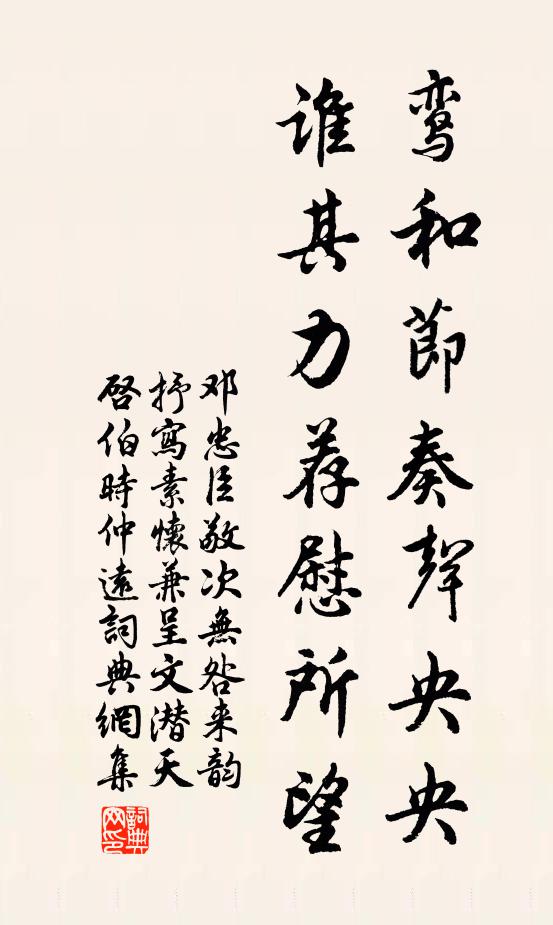 鸾和節奏聲央央
谁其力荐慰所望
邓忠臣敬次無咎来韵
抒寫素懷兼呈文潜天
啓伯時仲遠詞典網集
詞典網印